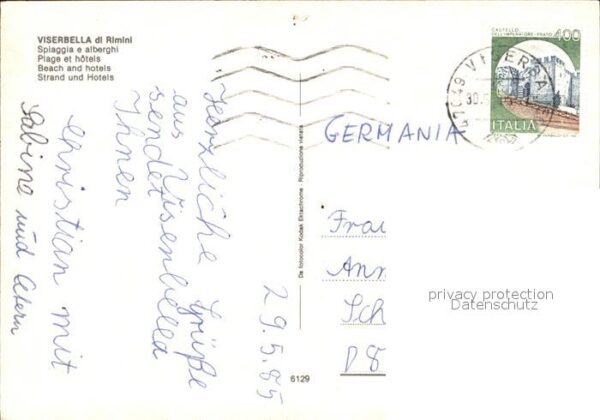 VISERBELLA di Rimini
Spiaggia e alberghi
Plage et hôtels
Beach and hotels
Strand und Hotels
29.5.85
Herzliche Grüße
aus Viserbella
sendet
Ihnen
Christian mit
Sabine und Eltern
De fotocolor Kodak Ektachrome - Riproduzione vietata
6129
CASTELLO
DELL'IMPERATORE - PRATO
400
ITALIA
47049 VISERBA
30.
GERMANIA
Frau
Ann
Sch
D 8
privacy protection
Datenschutz